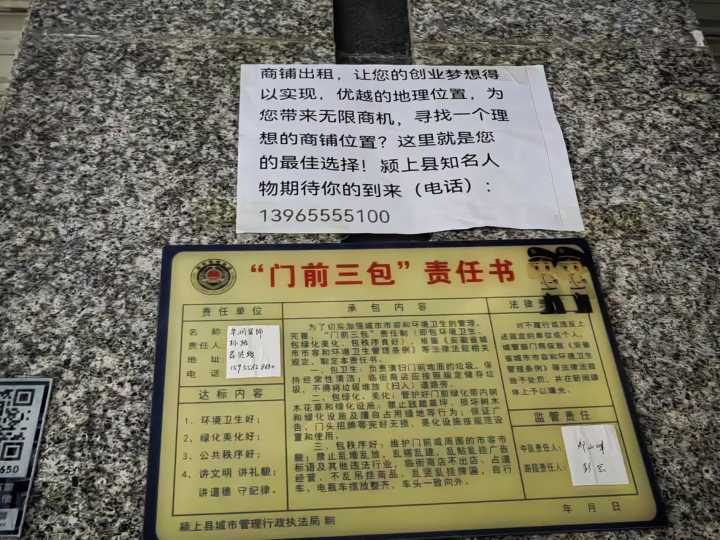 商铺出租，让您的创业梦想得
以实现，优越的地理位置，为
您带来无限商机，寻找一个理
想的商铺位置？这里就是您
的最佳选择！颍上县知名人
物期待你的到来（电话）：
13965555100
“门前三包”责任书
责任单位
名 称
责任人
地 址
电 话
达标内容
1、环境卫生好；
2、绿化美化好；
3、公共秩序好；
4、讲文明 讲礼貌；
讲道德 守纪律。
承包内容
为了切实加强城市市容和环境卫生的管理，
完善“门前三包”责任制（即包环境卫生、
包绿化美化、包秩序良好），根据《安徽省城
市市容和环境卫生管理条例》等法律法规相关
规定，制定本责任书。
一、包卫生：负责清扫门前地面的垃圾，保
持经常性清洁；临街商店应按照规定储存垃
圾，不得将垃圾堆放（扫入）道路旁。
二、包绿化、美化：管护好门前绿化带内树
木花草和绿化设施，禁止践踏草坪，损坏树木
和绿化设施及擅自占用绿地等行为；保证广
告、门头招牌等完好无损，美化设施按规范设
置和使用。
三、包秩序好：维护门前或周围的市容市
貌；禁止乱堆乱放、乱搭乱建、乱贴乱挂广告
标语及其他违法行业，临街商店不出店、占道
经营，不乱吊挂商品，乱竖乱挂牌匾，自行
车、电瓶车摆放整齐，车头一致向外。
法律
对不履行或违反上
述规定的单位或个人，
城管部门将依照《安徽
省城市市容和环境卫生
管理条例》等法律法规
给予处罚，并在新闻媒
体上予以曝光。
监管责任
中队责任人：
路段责任人：
年 月 日
颍上县城市管理行政执法局 制
650